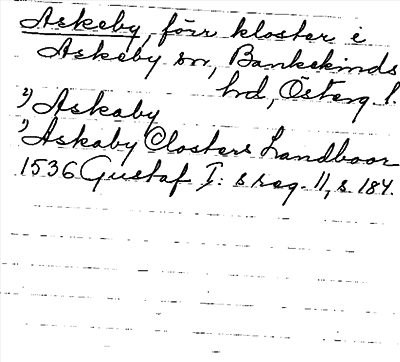 Askeby, förr kloster i
Askeby sn, Bankekinds
hd, Österg. l.
2) Askaby
1) Askaby Closters Landboar
1536 Gustaf I: s reg. 11, s. 184.